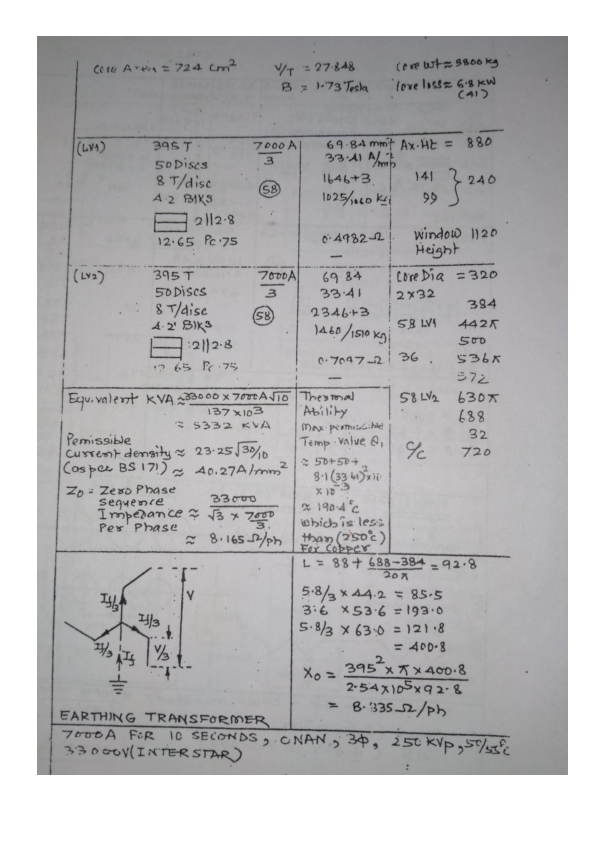 Core Area = 724 cm² V/T = 27.848 Core wt ≈ 9800 kg
B = 1.73 Tesla Core loss = 6.8 KW
(41)
(LV1) 395 T 7000 A 69.84 mm² Ax. Ht = 880
3 33.41 A/mm²
50 Discs
8 T/disc (58) 1646+3 141
4.2 Blks 1025/1060 Kg 99 } 240
2||2.8
12.65 Pc .75 0.4982 Ω Window 1120
— Height
(LV2) 395 T 7000 A 69 84 Core Dia = 320
50 Discs 3 33.41 2x32
8 T/disc (58) 2346+3 384
4.2 Blks 1460/1510 kg 58 LV1 442π
2||2.8 500
12 65 Pc .75 0.7097 Ω 36 536π
— 572
Equivalent KVA ≈ 33000 x 7000A √10
137 x 10³
≈ 5332 KVA
Permissible
Current density ≈ 23.25 √30/10
(as per BS 171) ≈ 40.27 A/mm²
Z₀ = Zero Phase
Sequence
Impedance ≈ 33000
√3 x 7000
3
Per Phase
≈ 8.165 Ω/ph
Thermal
Ability
Max permissible
Temp. value θ₁
≈ 50+50+
8.1 (33 41)² x10
x 10⁻³
≈ 190.4°C
Which is less
than (250°C)
For Copper
58 LV2 630π
688
32
C/C 720
If/3
V
If/3 If/3
If V/3
L = 88 + 688-384 = 92.8
20π
5.8/3 x 44.2 = 85.5
3.6 x 53.6 = 193.0
5.8/3 x 63.0 = 121.8
= 400.8
X₀ = 395² x π x 400.8
2.54 x 10⁵ x 92.8
= 8.335 Ω/ph
EARTHING TRANSFORMER
7000A FOR 10 SECONDS, ONAN, 3Φ, 250 KVp, 50/55°C
33000V (INTERSTAR)